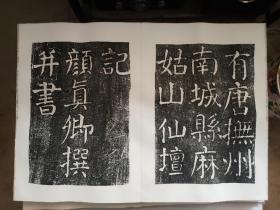 有唐撫州
南城縣麻
姑山仙壇
記
顏真卿撰
并書